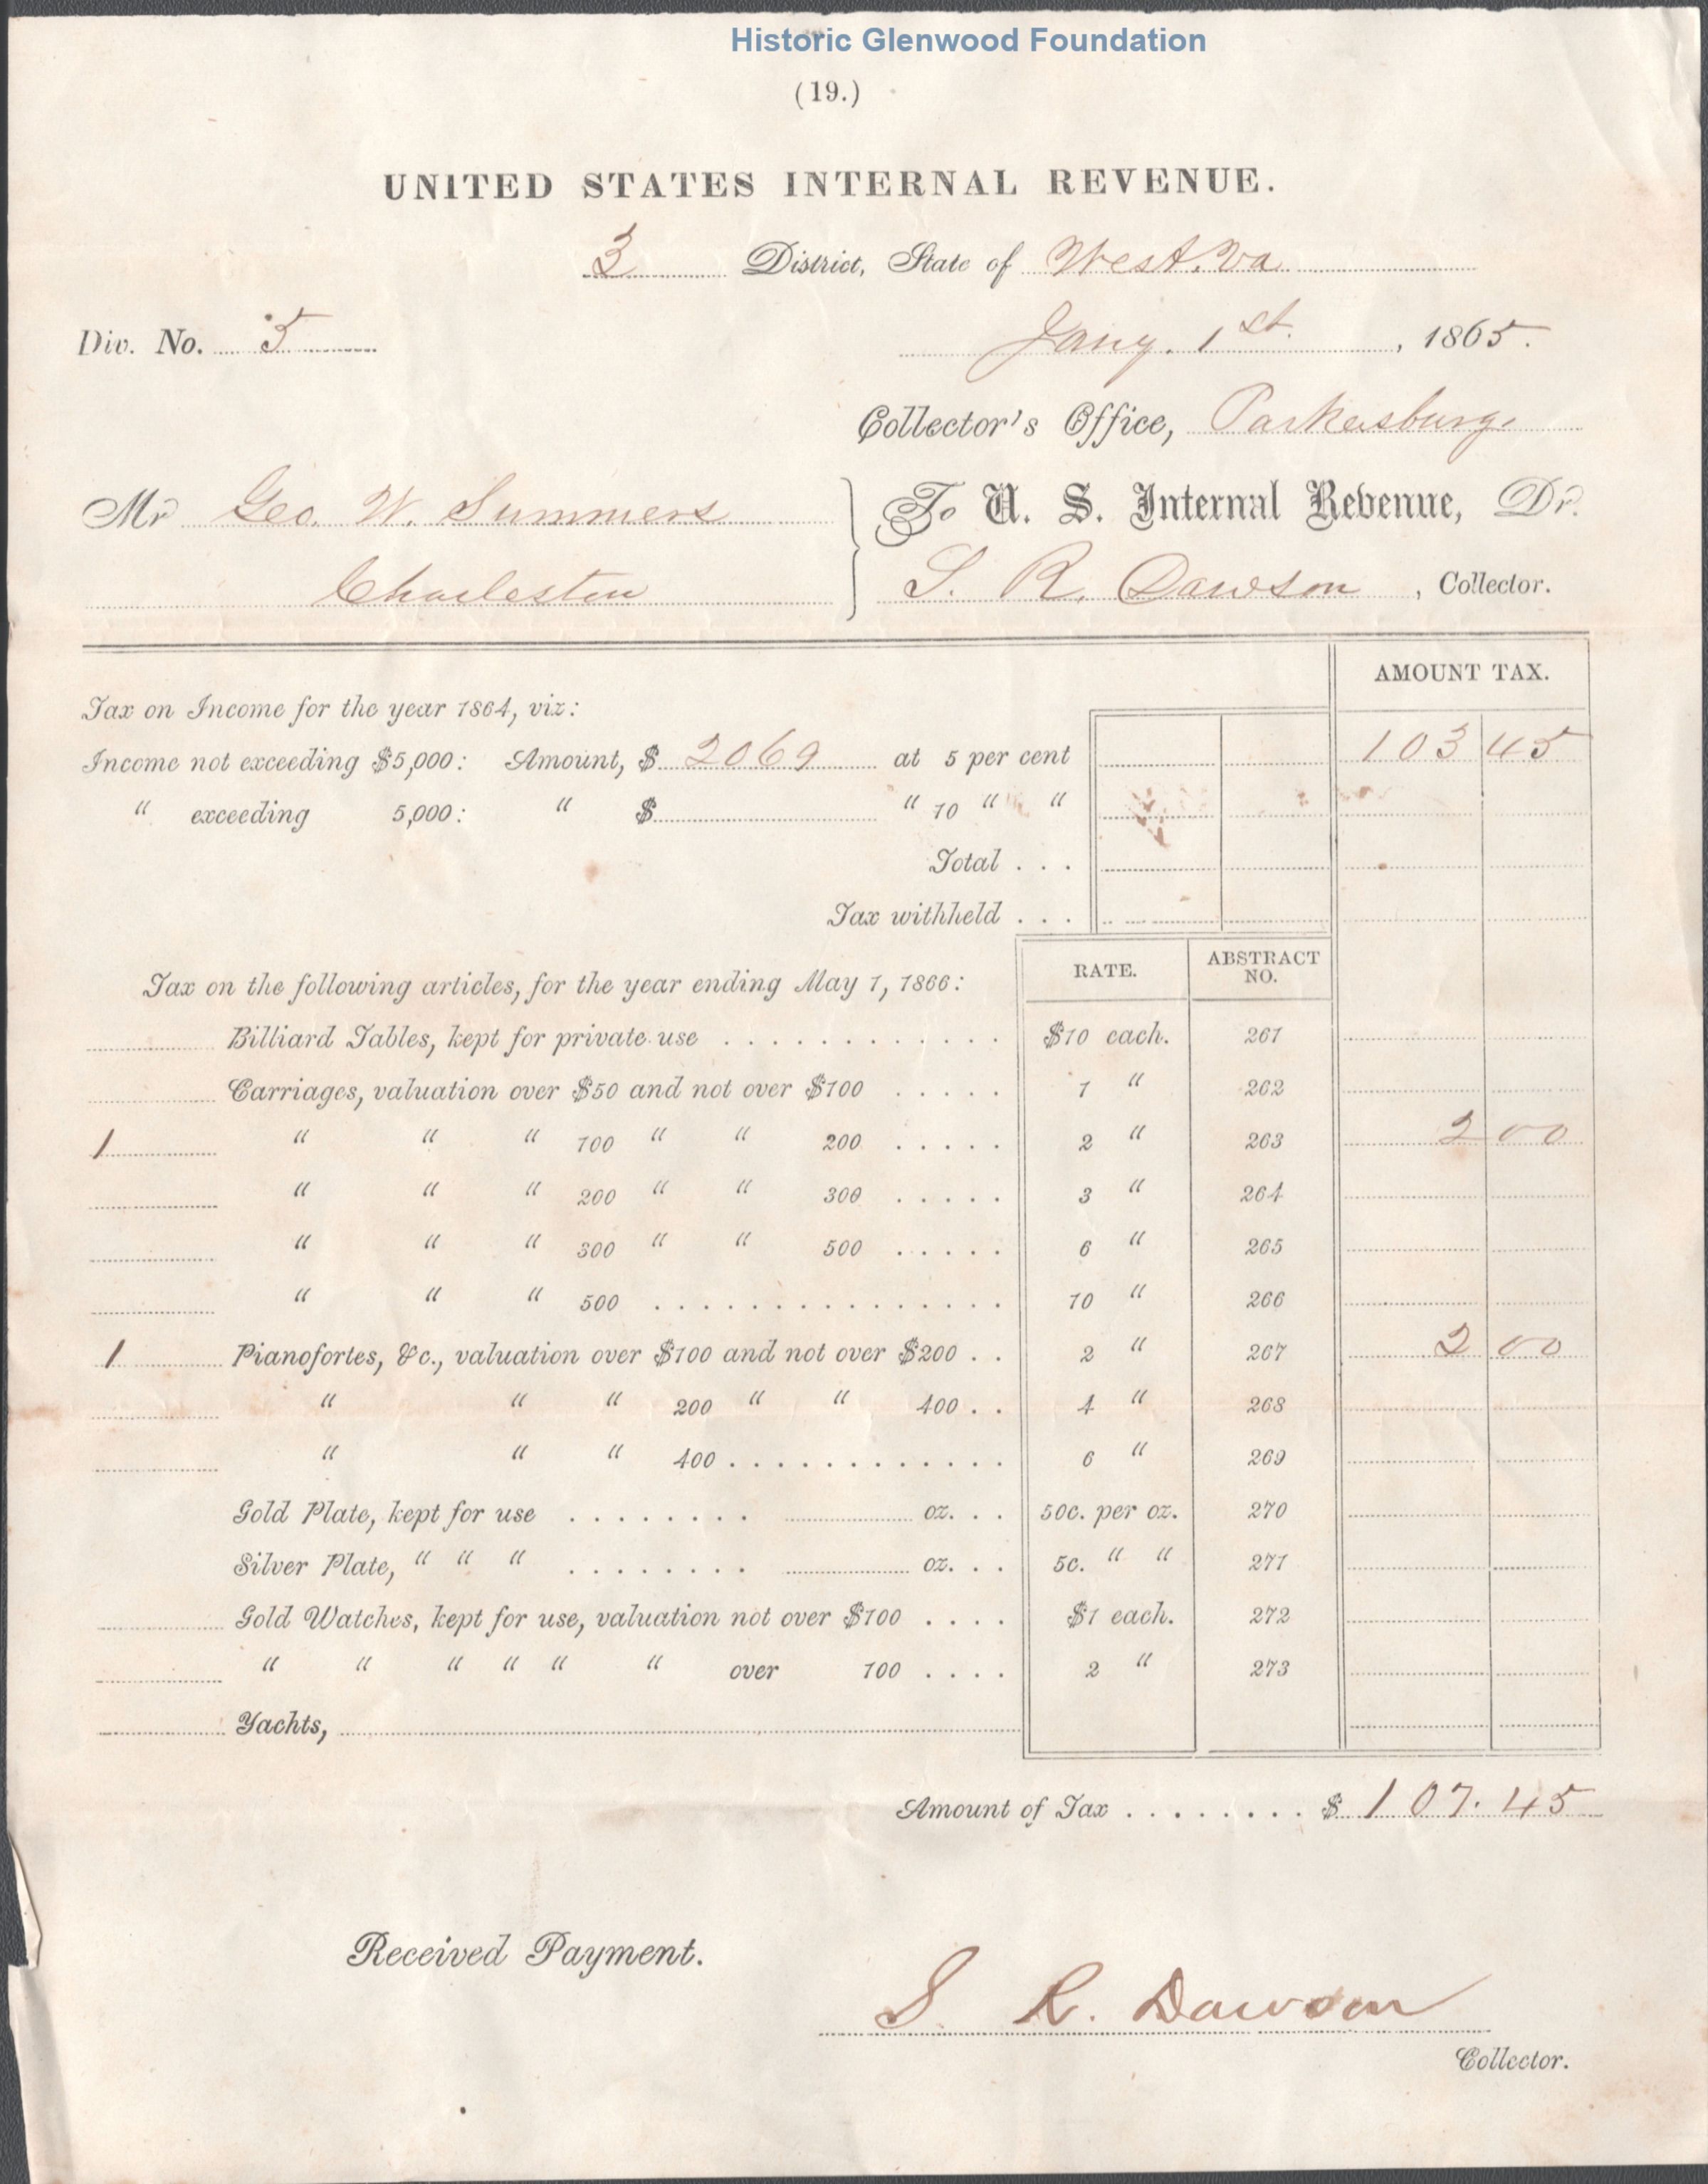 Historic Glenwood Foundation
(19.)
UNITED STATES INTERNAL REVENUE.
3 District, State of West. Va
Div. No. 5
Jany. 1st. , 1865.
Collector's Office, Parkersburg.
Mr Geo. W. Summers
To U. S. Internal Revenue, Dr.
Charleston
S. R. Dawson , Collector.
AMOUNT TAX.
Tax on Income for the year 1864, viz:
Income not exceeding $5,000: Amount, $ 2069 at 5 per cent 103 45
" exceeding 5,000: " $ " 10 " "
Total . . .
Tax withheld . . .
RATE. ABSTRACT NO.
Tax on the following articles, for the year ending May 1, 1866:
Billiard Tables, kept for private use . . . . . . . . . . . . $10 each. 261
Carriages, valuation over $50 and not over $100 . . . . . 1 " 262
1 " " " 100 " " 200 . . . . . 2 " 263 2 00
" " " 200 " " 300 . . . . . 3 " 264
" " " 300 " " 500 . . . . . 6 " 265
" " " 500 . . . . . . . . . . . . . . . 10 " 266
1 Pianofortes, &c., valuation over $100 and not over $200 . . 2 " 267 2 00
" " " 200 " " 400 . . 4 " 268
" " " 400 . . . . . . . . . . . . 6 " 269
Gold Plate, kept for use . . . . . . . . oz. . . 50c. per oz. 270
Silver Plate, " " " . . . . . . . . oz. . . 5c. " " 271
Gold Watches, kept for use, valuation not over $100 . . . . $1 each. 272
" " " " " " over 100 . . . . 2 " 273
Yachts,
Amount of Tax . . . . . . . . $ 107.45
Received Payment.
S R. Dawson
Collector.